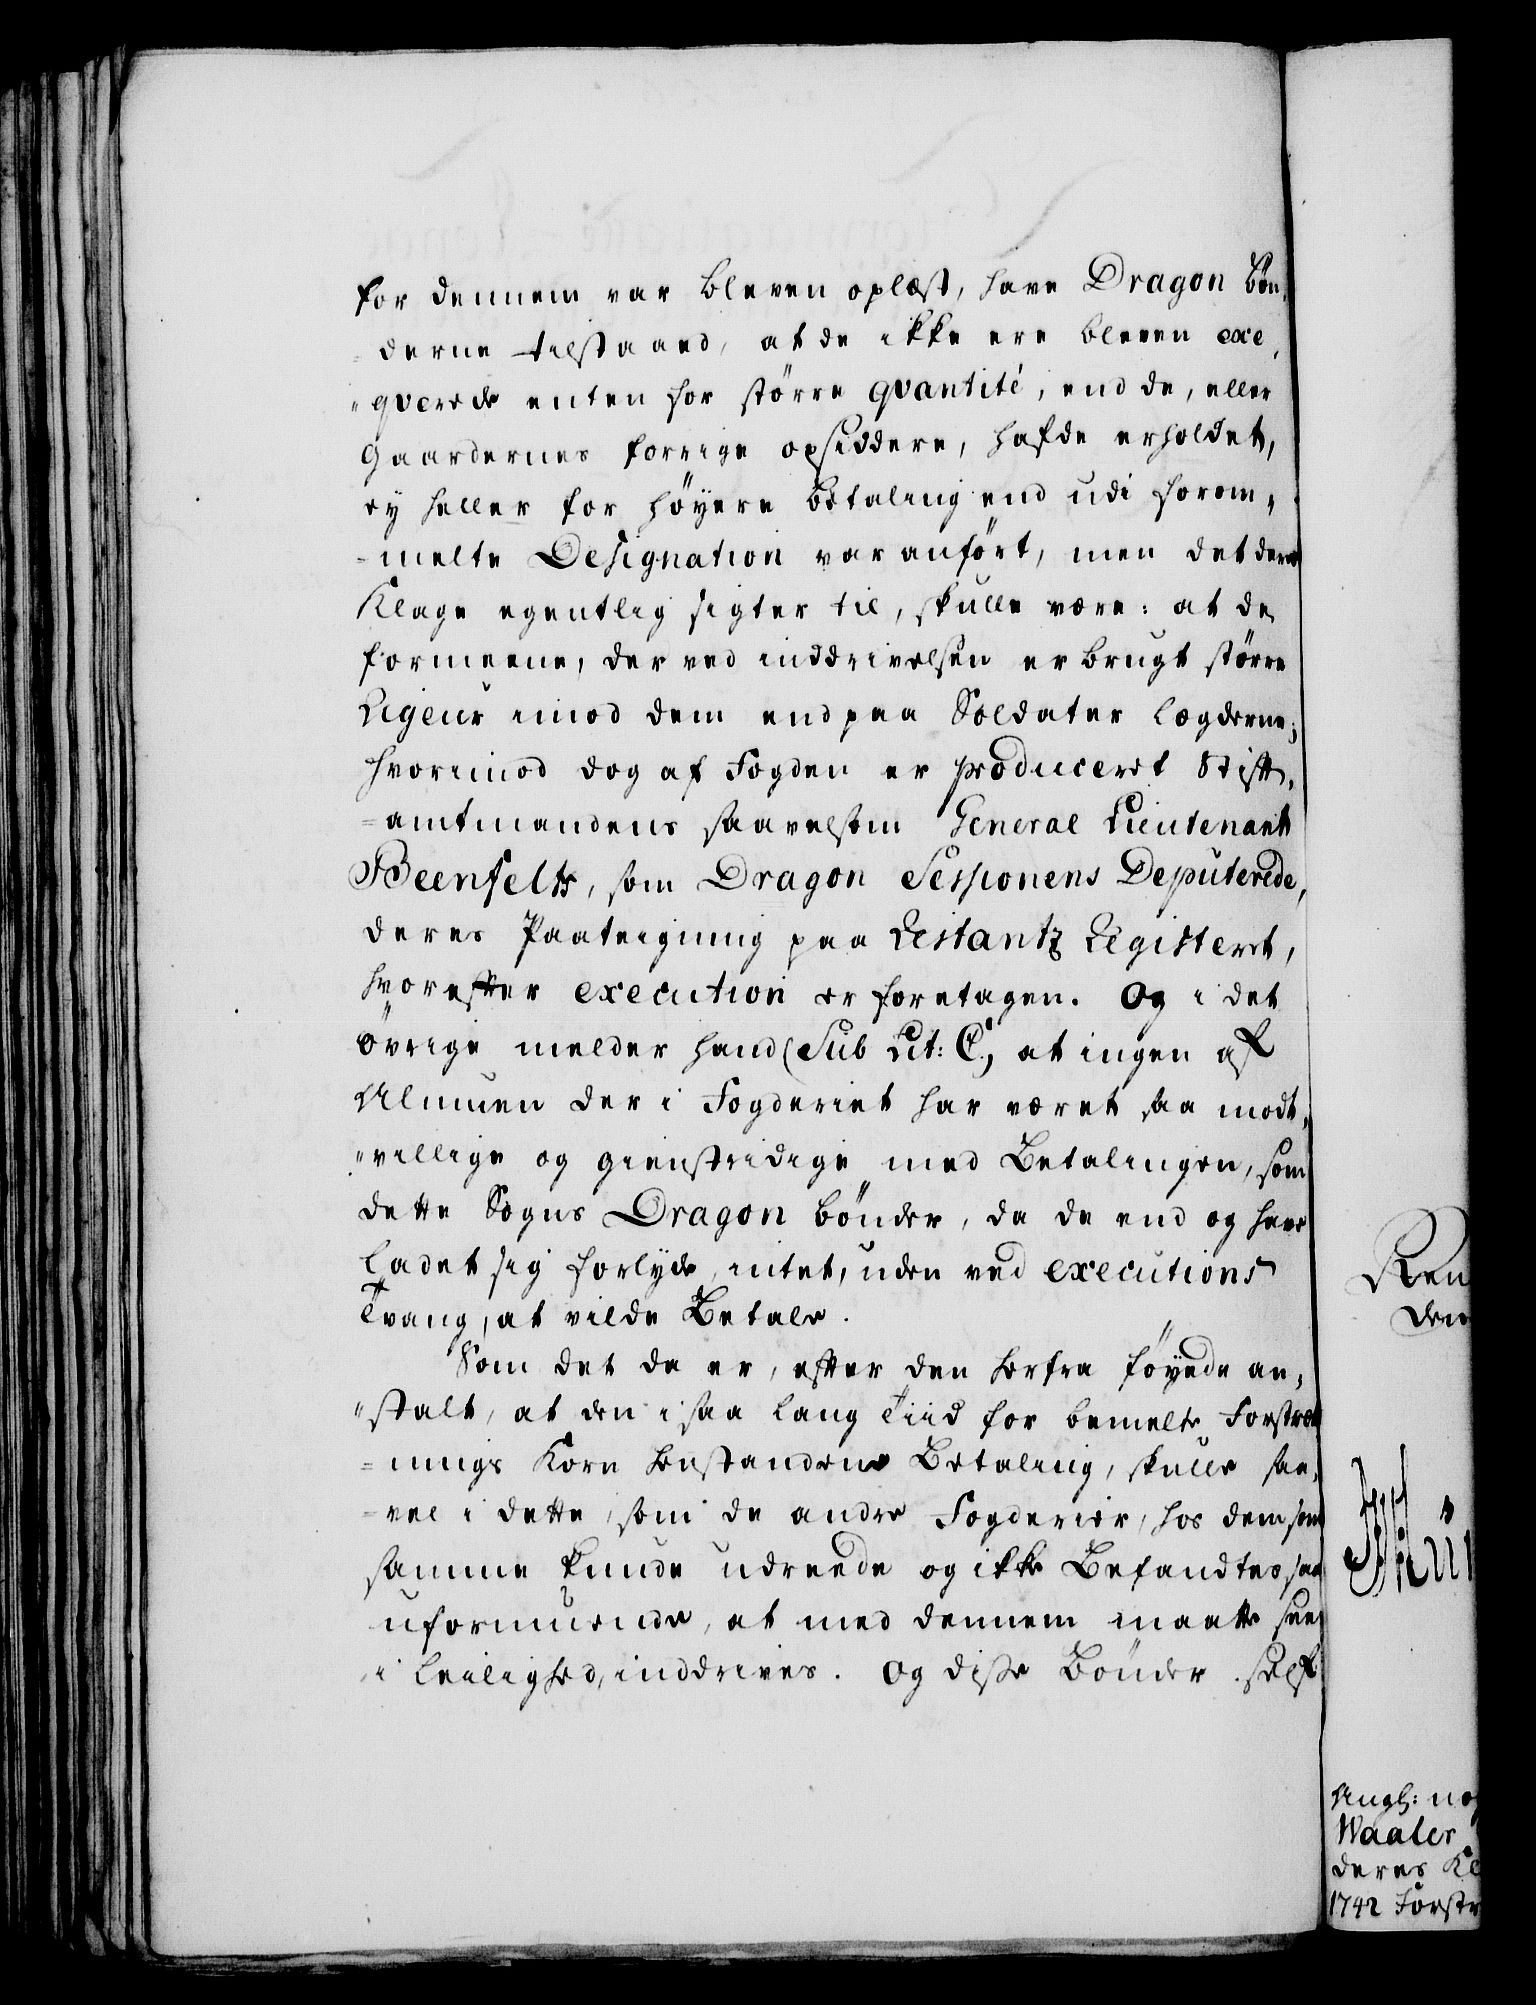 for dennem var bleven oplæst, have Dragon bøn,
=derne tilstaaed, at de ikke ere bleven exe,
"qverede enten for större qvantité, end de, eller
Gaardernes forrige opsiddere, hafde erholdet,
ey heller for höyere betaling end udi forom,
=melte Designation var anført, men det deres
Klage egentlig sigter til, skulle være: at de
formeene, der ved inddrivelsen er brugt större
Rigeur imod dem end paa Soldater lægderne;
hvorimod dog af Fogden er produceret Stift,
=amtmandens saavelsom General Lieutenant
Beenfelts, som Dragon Sessionens Deputerede,
deres Paateigning paa Restantz Registeret,
hvorefter execution er foretagen. Og i det
övrige melder hand (Sub Lit: C.) at ingen af
Almuen der i Fogderiet har været saa modt,
"villige og gienstridige med Betalingen, som
dette Sogns Dragon bönder, da de end og have
ladet sig forlyde, intet, uden ved executions
Tvang, at vilde Betale.
Som det da er, efter den herfra föyede an,
"stalt, at den i saa lang Tiid for bemelte Forstræk
=nings Korn bestandene Betaling, skulle saa,
=vel i dette, som de andre Fogderier, hos dem som
samme kunde udreede og ikke Befandtes saa
uformuende, at med dennem maatte sees
i leilighed, inddrives. Og disse Bönder self
Ren
den
Angl: no
Waaler
deres Kl
1742 Forstr